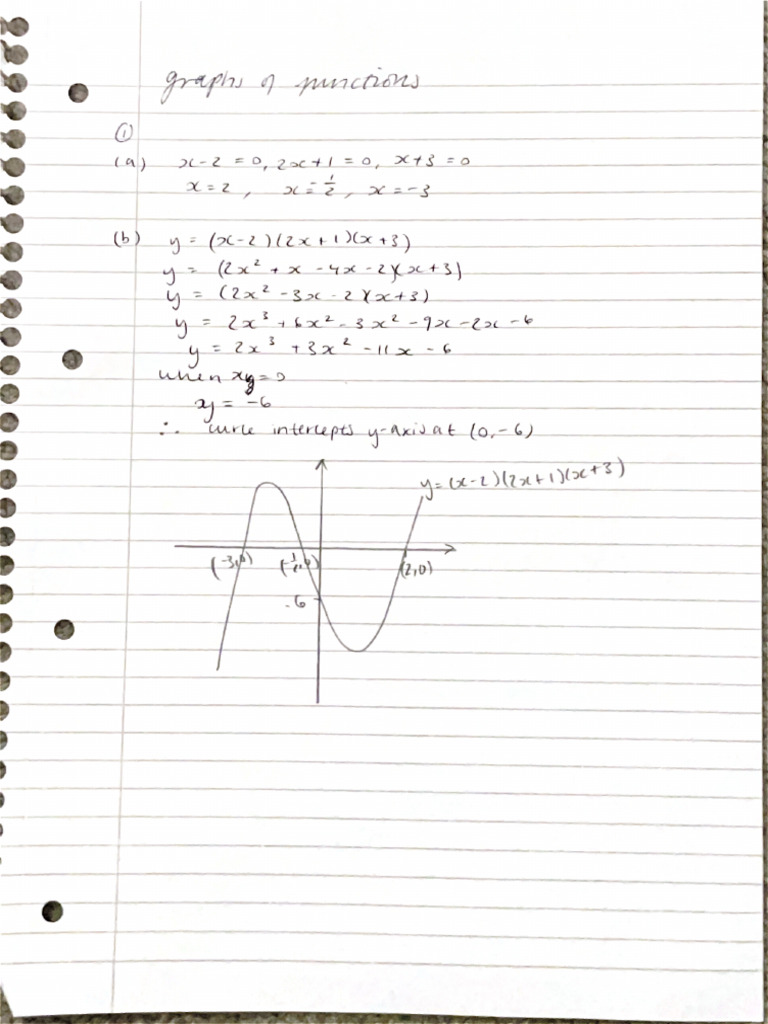 graphs of functions
①
(a) x-2 = 0, 2x+1 = 0, x+3 = 0
x = 2, x = -1/2, x = -3
(b) y = (x-2)(2x+1)(x+3)
y = (2x² + x - 4x - 2)(x+3)
y = (2x² - 3x - 2)(x+3)
y = 2x³ + 6x² - 3x² - 9x - 2x - 6
y = 2x³ + 3x² - 11x - 6
when x = 0
y = -6
∴ curve intercepts y-axis at (0,-6)
y = (x-2)(2x+1)(x+3)
(-3,0) (-1/2,0) (2,0)
-6